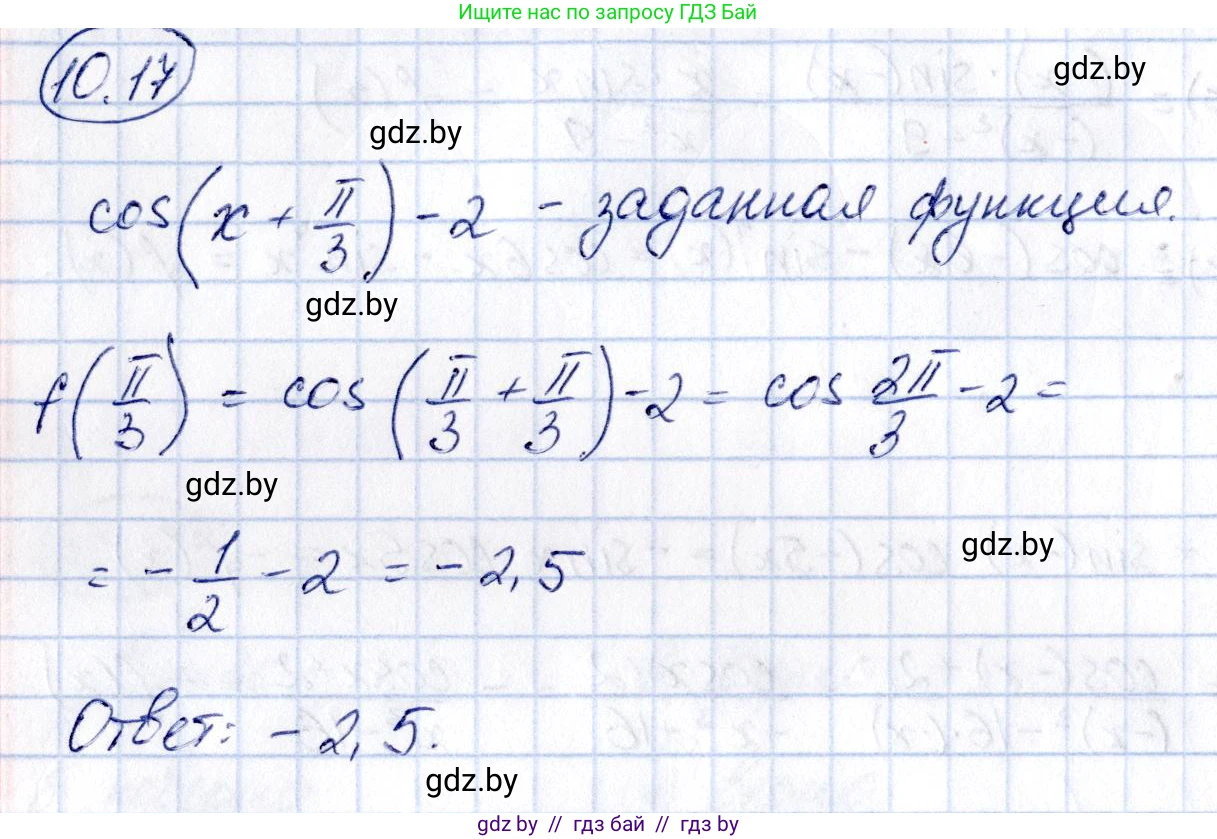 Ищите нас по запросу ГДЗ Бай
10.17
gdz.by
gdz.by
cos(x + π/3) - 2 - заданная функция.
gdz.by
f(π/3) = cos(π/3 + π/3) - 2 = cos 2π/3 - 2 =
gdz.by
gdz.by
= - 1/2 - 2 = - 2,5
Ответ: - 2,5.
gdz.by
gdz.by // гдз бай // gdz.by